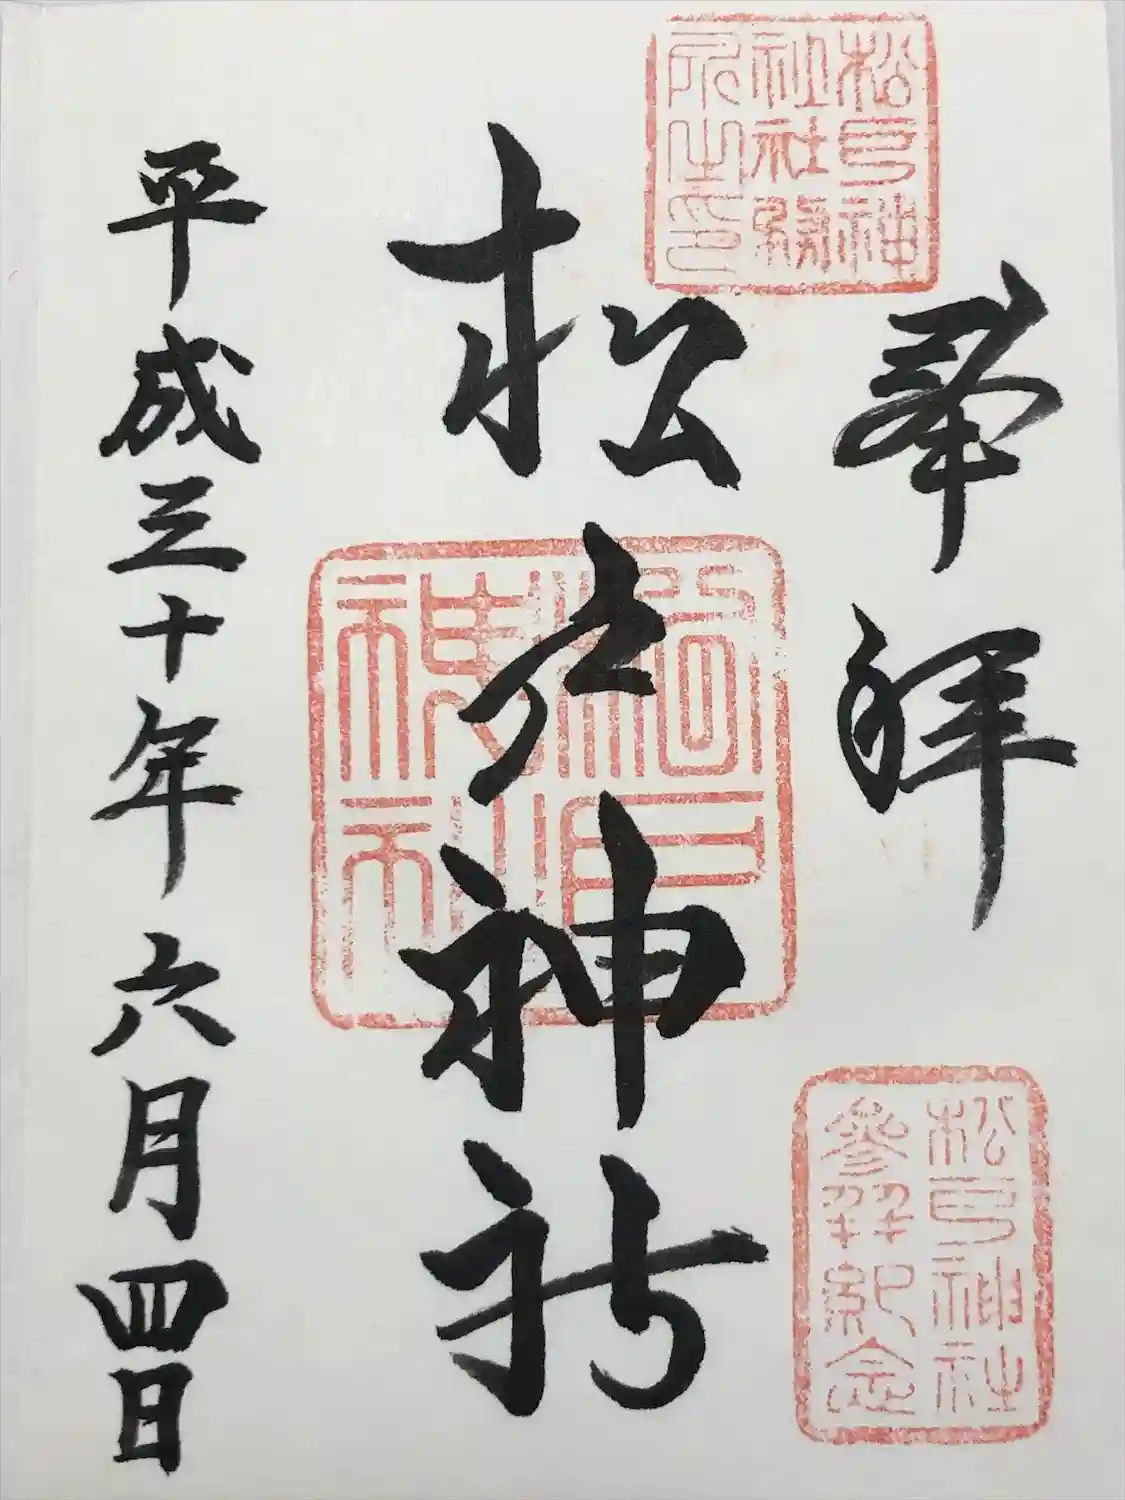 奉拝
松戸神社
平成三十年六月四日
松戸神
社社務
所之印
松戸
神社
松戸神社
參拜紀念